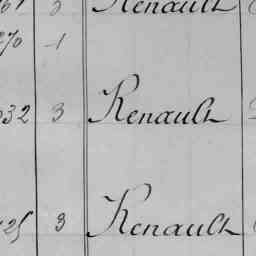 3 Renault
270 1
32 3 Renault
25 3 Renault